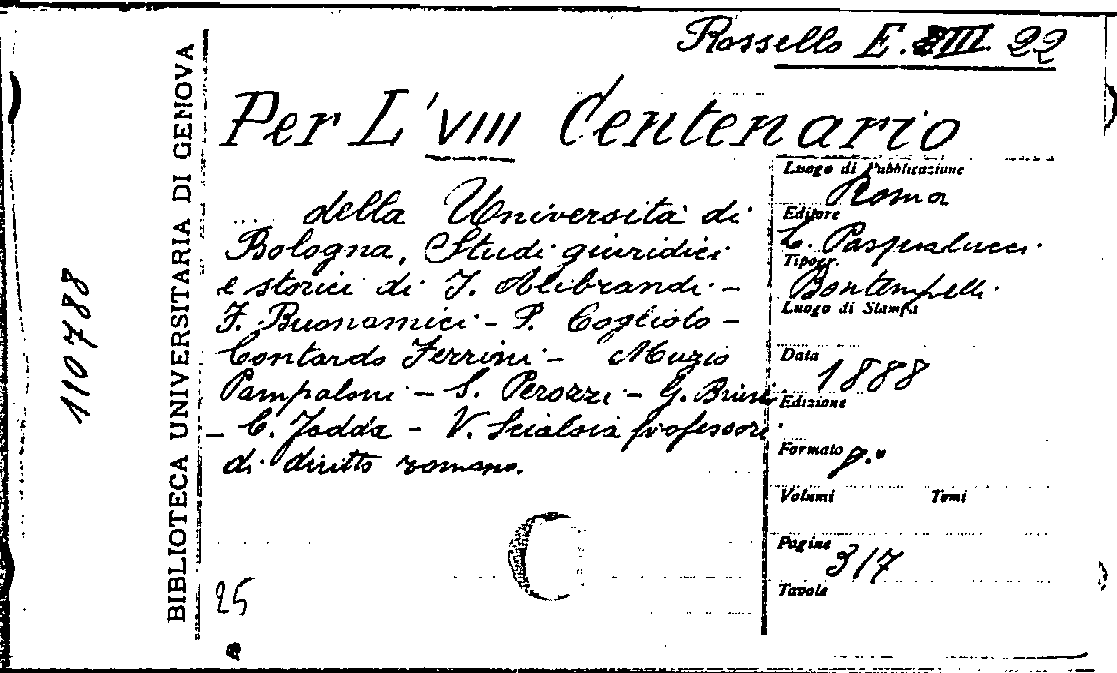 Rossello E. VIII. 22
Per L'VIII Centenario
della Università di
Bologna, Studi giuridici
e storici di I. Alibrandi -
F. Buonamici - P. Cogliolo -
Contardo Ferrini - Muzio
Pampaloni - S. Perozzi - G. Brini
- C. Fadda - V. Scialoia professori
di diritto romano.
Luogo di Pubblicazione
Roma
Editore
L. Pasqualucci
Tipogr.
Bontempelli
Luogo di Stampa
Data
1888
Edizione
Formato 8.°
Volumi Tomi
Pagine
317
Tavole
25
BIBLIOTECA UNIVERSITARIA DI GENOVA
110788